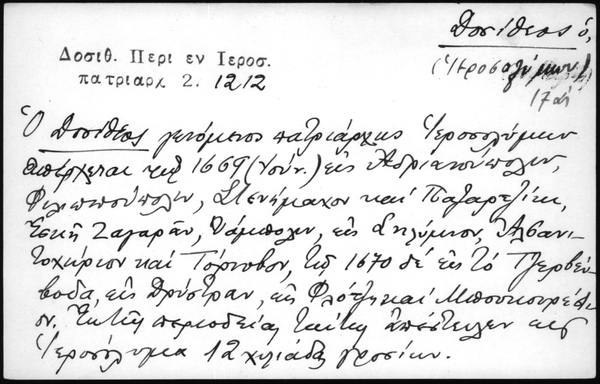 Δοσίθεος ὁ,
(Ἱεροσολύμων)
17 αἰ
Δοσιθ. Περι εν Ιεροσ.
πατριαρχ 2. 1212
Ὁ Δοσίθεος γενόμενος πατριάρχης Ἱεροσολύμων
ἀπέρχεται τῷ 1669 (Ἰούν.) εἰς Ἀδριανούπολιν,
Φιλιππούπολιν, Στενήμαχον καὶ Παζαρτζίκ,
Ἐσκῆ Ζαγαρᾶν, Ὑάμπολιν, εἰς Σηλύμνον, Ἀλβανι-
τοχώριον καὶ Τόρνοβον, τῷ 1670 δὲ εἰς τὸ Τζερβέν-
βοδα, εἰς Δρύστραν, εἰς Φλότζι καὶ Μπουκουρέστι-
ον. Ἐκ τῆς περιοδείας ταύτης ἀπέστειλεν εἰς
Ἱεροσόλυμα 12 χιλιάδας γροσίων.